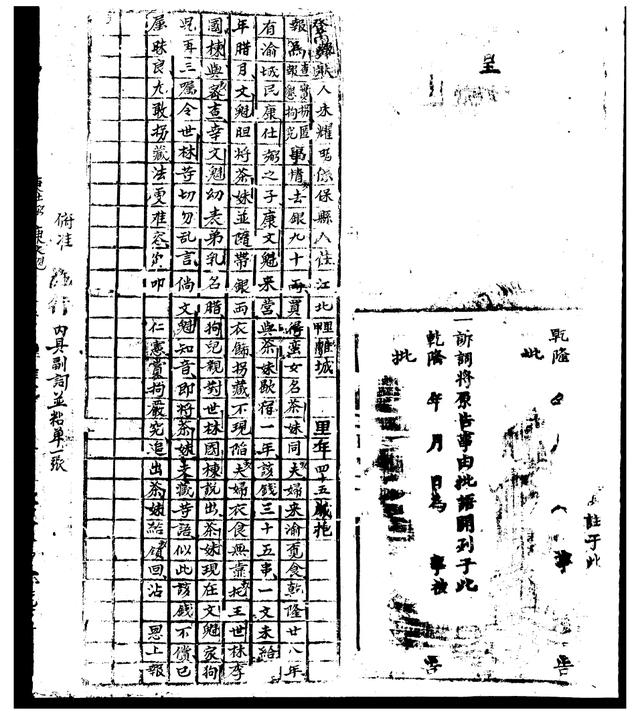 呈
註于此
乾隆
批
一訴詞將原告事由批語開列于此
乾隆 年 月 日為 事被 告
批
狀人朱耀明係保縣人住江北 離城 里年四十五歲抱
報為查實拐匿報懇拘究事情去銀九十兩買得蠻女名茶妹同夫婦來渝覓食乾隆廿八年
有渝城民康仕弼之子康文魁來當與茶妹歇宿一年該錢三十五串一文未給
年腊月文魁胆將茶妹並隨帶銀兩衣飾拐藏不現陷夫婦衣食無靠托王世林李
國棟與 查幸文魁幼表弟乳名腊狗兒親對世林國棟說出茶妹現在文魁家狗
児再三囑令世林等切勿乱言倘文魁知音即將茶妹支藏等語似此該錢不償已
屬昧良尤敢拐藏法更难容 叩 仁憲賞拘嚴究追出茶妹給領回沾 恩上報
俯准 行 内具副詞並粘單一張